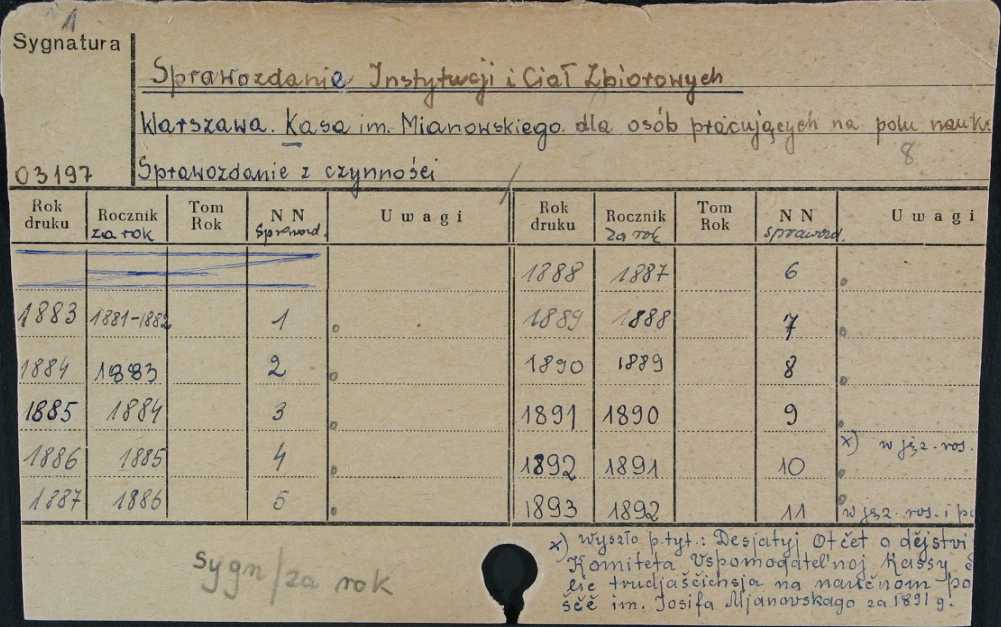 1
Sygnatura
Sprawozdanie Instytucji i Ciał Zbiorowych
Warszawa. Kasa im. Mianowskiego dla osób pracujących na polu nauk.
8
03197 Sprawozdanie z czynności
Rok druku Rocznik za rok Tom Rok NN sprawozd. Uwagi Rok druku Rocznik za rok Tom Rok NN sprawozd. Uwagi
1888 1887 6
1883 1881-1882 1 1889 1888 7
1884 1883 2 1890 1889 8
1885 1884 3 1891 1890 9
1886 1885 4 1892 1891 10 x) w jęz. ros.
1887 1886 5 1893 1892 11 w jęz. ros. i po
x) wyszło p. tyt.: Desjatyj Otčet o dějstvi
Komiteta Vspomogatel'noj Kassy
lic trudjaščichsja na naučnom po
ščě im. Iosifa Mjanovskago za 1891 g.
Sygn/za rok